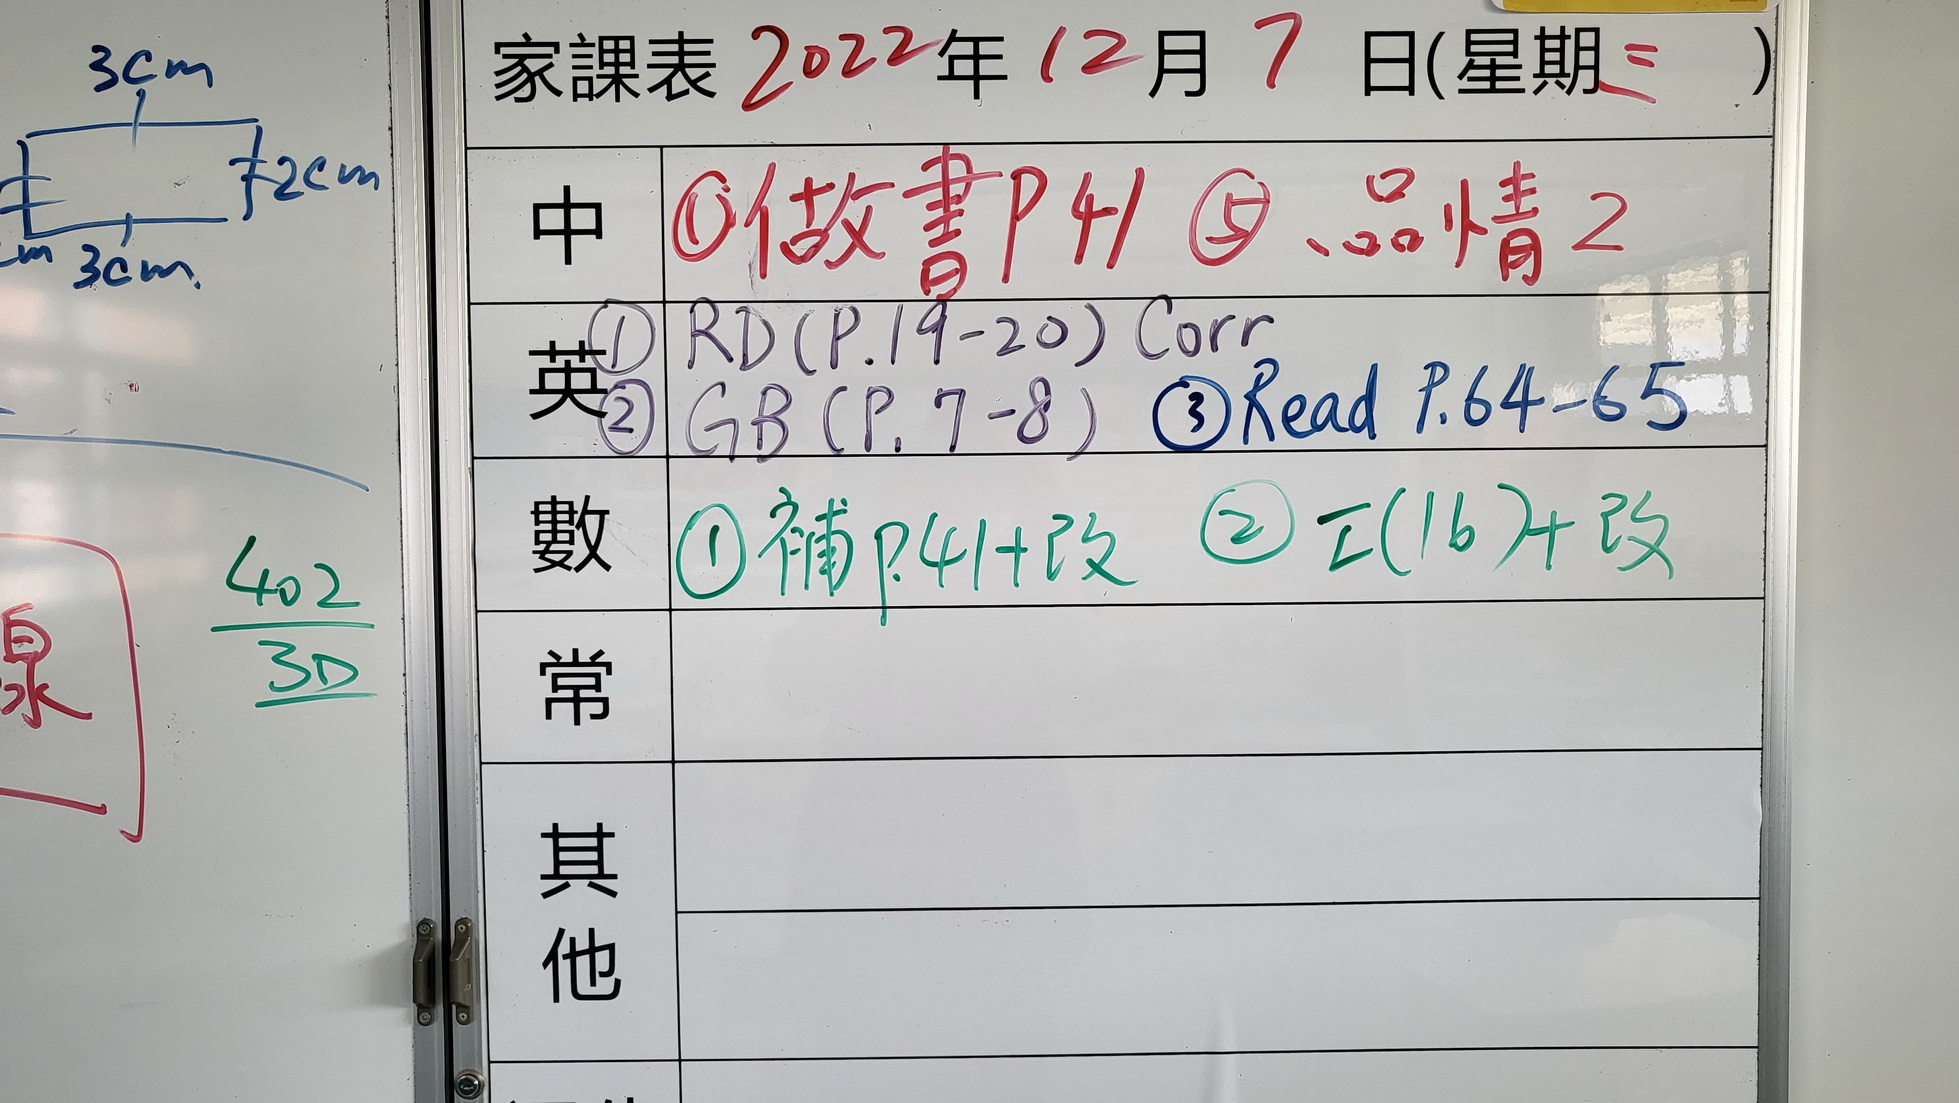 3cm
2cm
cm
3cm
線
402
3D
家課表 2022年 12月 7 日(星期三 )
中
①做書P41 ⑤品情2
英
① RD(P.19-20) Corr
② GB (P. 7-8) ③Read P.64-65
數
①補P.41+改 ②工(16)+改
常
其
他